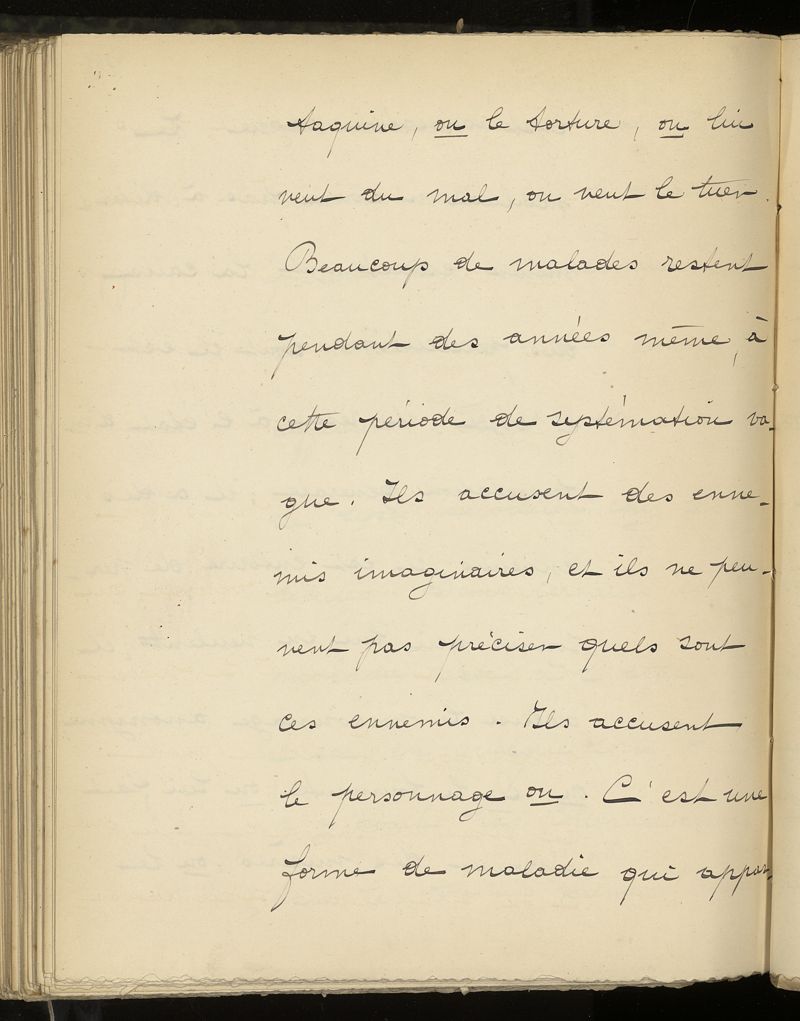 taquine, on le torture, on lui
veut du mal, on veut le tuer.
Beaucoup de malades restent
pendant des années même, à
cette période de systémation va-
gue. Ils accusent des enne-
mis imaginaires, et ils ne peu-
vent pas préciser quels sont
ces ennemis. Ils accusent
le personnage on. C'est une
forme de maladie qui appar-